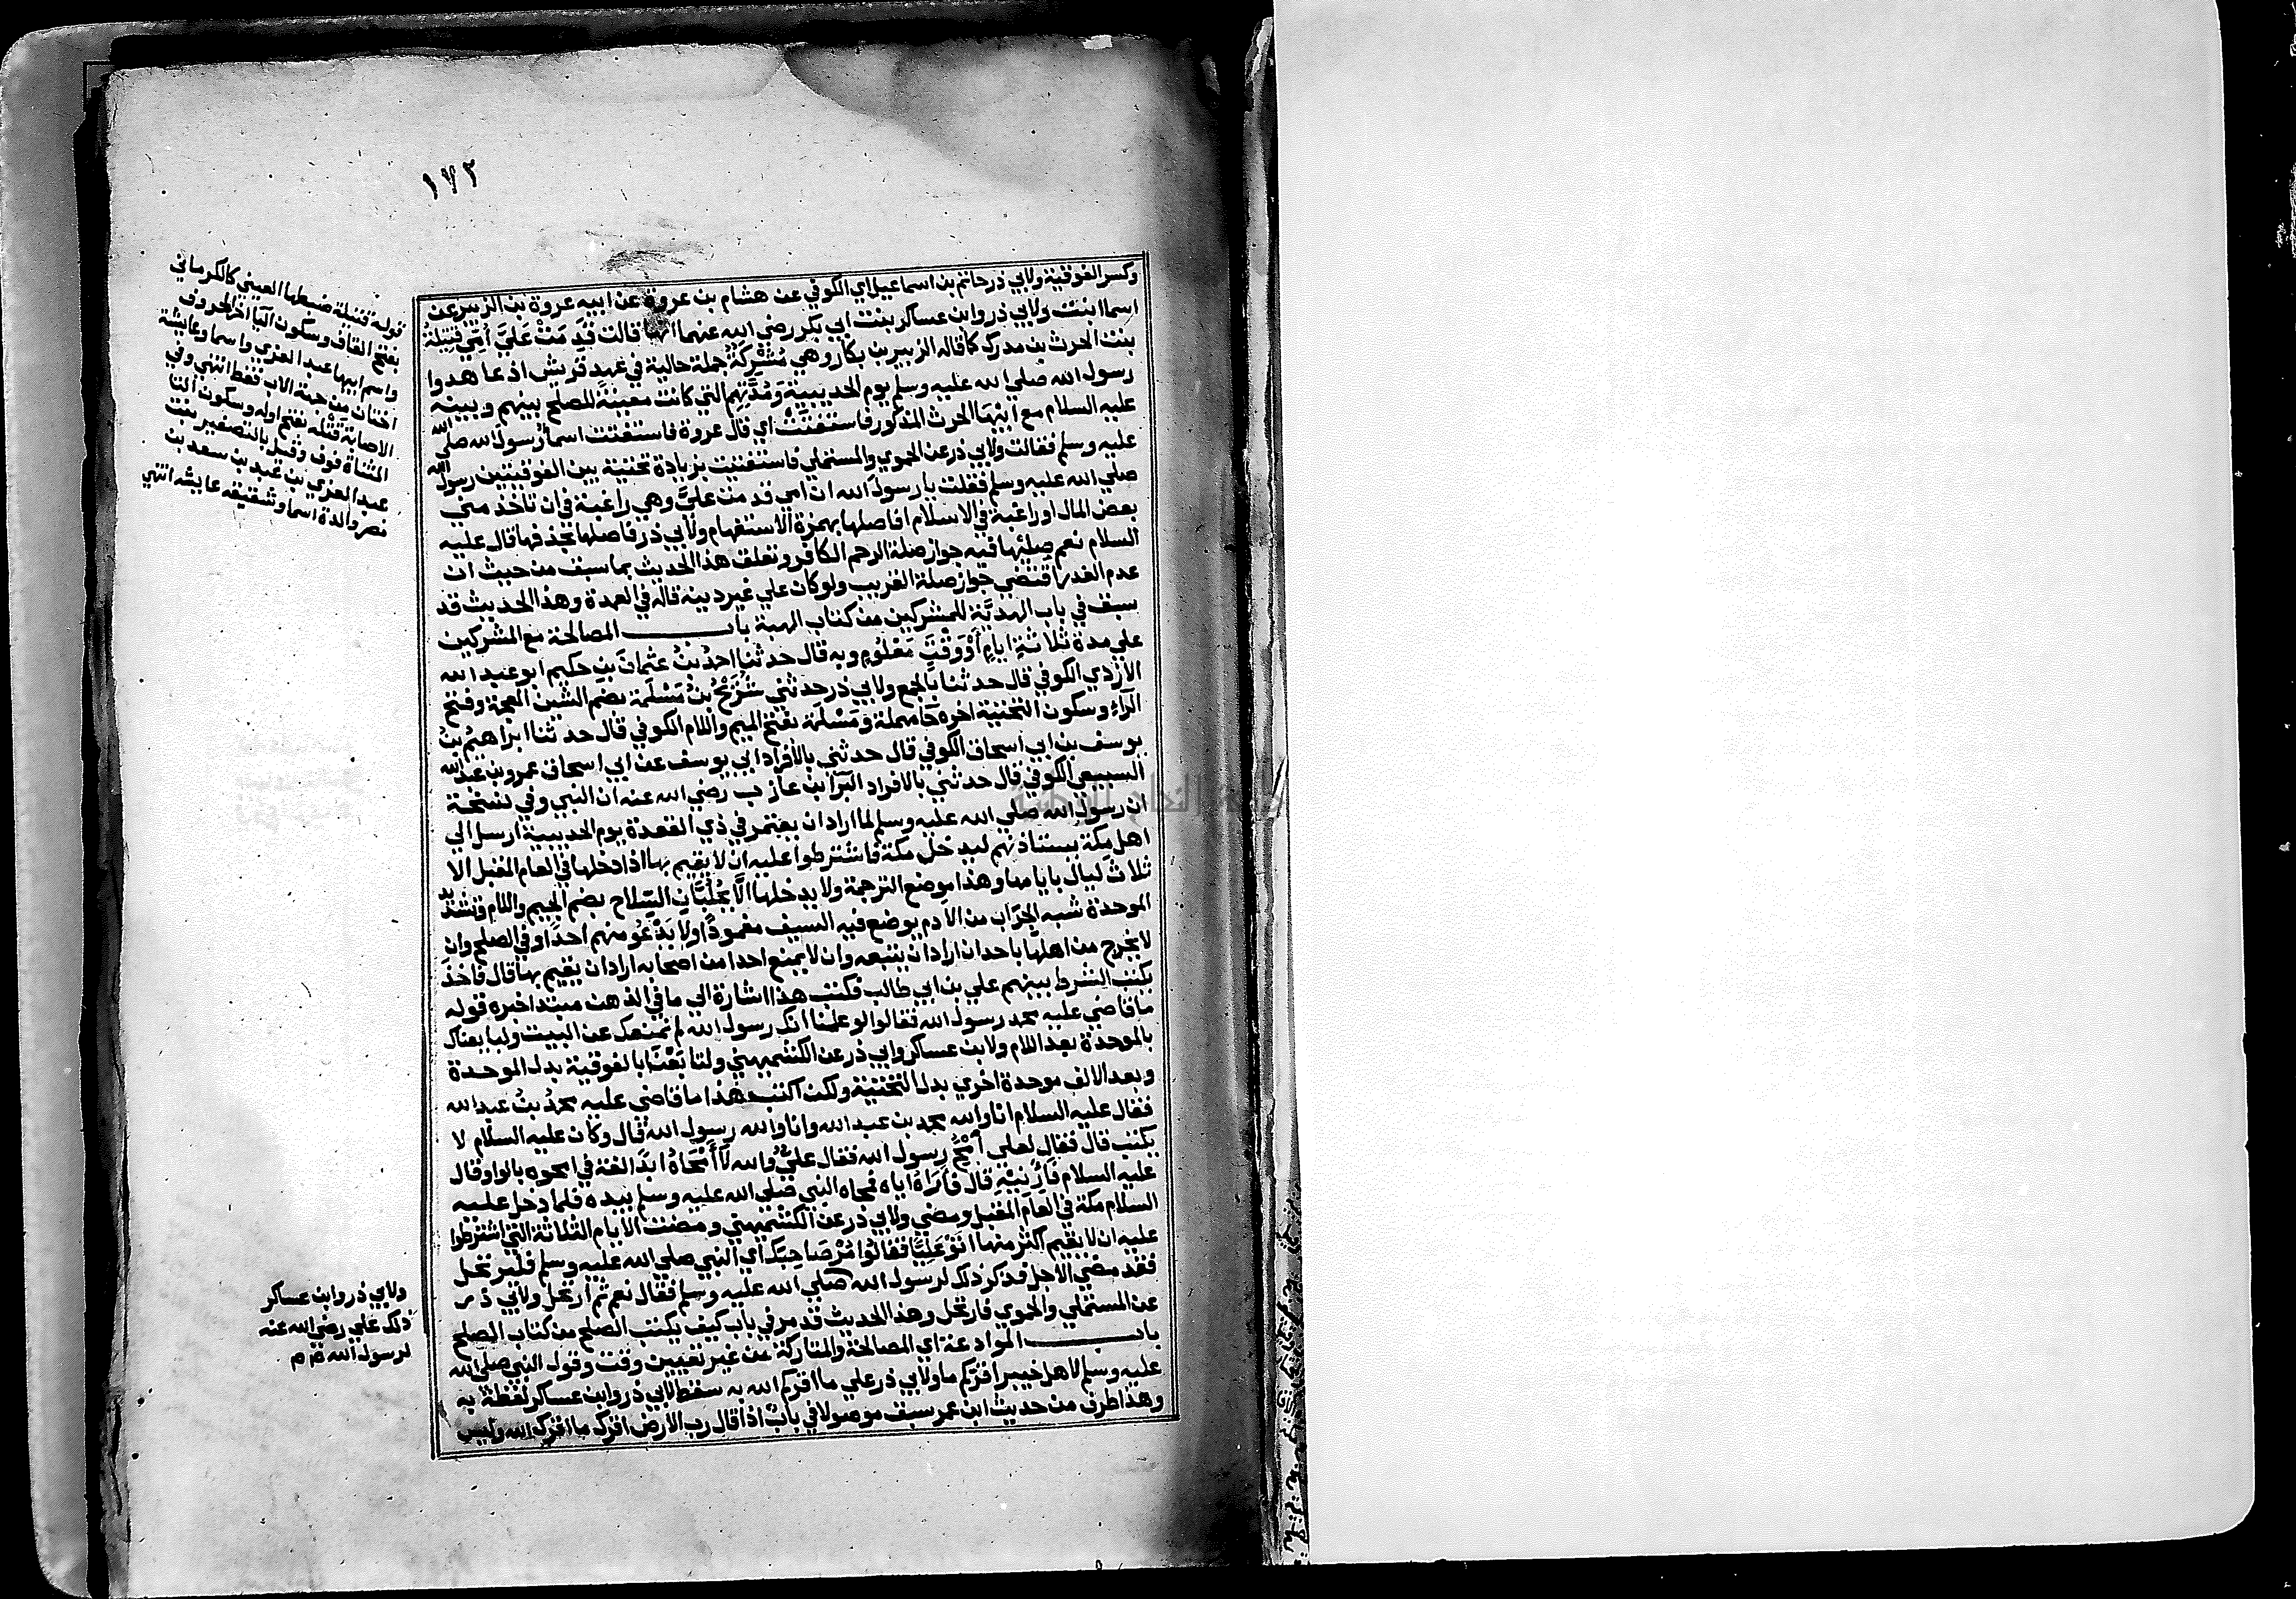 ١٧٢
وكسر الفوقية ولابي ذر حاتم بن اسماعيل اي الكوفي عن هشام بن عروة عن ابيه عروة بن الزبير عن
اسما ابنت ولابي ذر وابن عساكر بنت ابي بكر رضي الله عنهما انها قالت قَدِمَتْ عَلَيَّ أُمِّي قتيلة
بنت الحرث بن مدرك كما قاله الزبير بن بكار وهي مُشْرِكَةٌ جملة حالية في عهد قريش اذ عاهدوا
رسول الله صلي الله عليه وسلم يوم الحديبية وَمُدَّتِهِم التي كانت معينة للصلح بينهم وبينه
عليه السلام مع ابنها الحرث المذكور فاستفتَتْ اي قال عروة فاستفتت اسما رسول الله صلي الله
عليه وسلم فقالت ولابي ذر عن الحموي والمستملي فاستفتيت بزيادة تحتية بين الفوقيتين رسول الله
صلي الله عليه وسلم فقلت يا رسول الله ان امي قدمت عليَّ وهي راغبة في ان تاخذ مني
بعض المال او راغبة في الاسلام افاصلها بهمزة الاستفهام ولابي ذر فاصلها بحذفها قال عليه
السلام نعم صِلِيْها فيه جواز صلة الرحم الكافر وتعلق هذا الحديث بما سبق من حيث ان
عدم الغدر اقتضي جواز صلة القريب ولو كان علي غير دينه قاله في العمدة وهذا الحديث قد
سبق في باب الهديَّة للمشركين من كتاب الهبة باب المصالحة مع المشركين
علي مدة ثلاثة ايام أَوْ وَقْتٍ مَعْلُوْمٍ وبه قال حدثنا احمدُ بنُ عثمانَ بنِ حكيم ابو عبد الله
الازدي الكوفي قال حدثنا بالجمع ولابي ذر حدثني شُرَيْحُ بنُ مَسْلَمة بضم الشين المعجمة وفتح
الراء وسكون التحتية اخره حا مهملة ومَسْلمة بفتح الميم واللام الكوفي قال حدثنا ابراهيمُ بنُ
يوسف بن ابي اسحاق الكوفي قال حدثني بالافراد ابي يوسف عن ابي اسحاق عمرو بن عبد الله
السبيعي الكوفي قال حدثني بالافراد البَرَا بن عازب رضي الله عنه ان النبي وفي نسخة
ان رسول الله صلي الله عليه وسلم لما اراد ان يعتمر في ذي القعدة يوم الحديبية ارسل الي
اهل مكة يستاذنهم ليدخل مكة فاشترطوا عليه ان لا يقيم بها اذا دخلها في العام المقبل الا
ثلاث ليال بايامها وهذا موضع الترجمة ولا يدخلها الَّا بِجُلُبَّانِ السِّلاح بضم الجيم واللام وتشديد
الموحدة شبه الجراب من الادم يوضع فيه السيف مغمودًا ولا يَدْعُو منهم احدًا وفي الصلح وان
لا يخرج من اهلها باحد ان اراد ان يتبعه وان لا يمنع احدا من اصحابه اراد ان يقيم بها قال فاخذ
يكتب الشرط بينهم علي بن ابي طالب فكتب هذا اشارة الي ما في الذهن مبتدا خبره قوله
ما قاضي عليه محمد رسول الله فقالوا لو علمنا انك رسول الله لم نمنعك عن البيت ولبايعناك
بالموحدة بعد اللام ولابن عساكر وابي ذر عن الكشميهني ولتابَعْنَا بالفوقية بدل الموحدة
وبعد الالف موحدة اخري بدل التحتية ولكن اكتب هذا ما قاضي عليه محمدُ بنُ عبد الله
فقال عليه السلام انا والله محمد بن عبد الله وانا والله رسول الله قال وكان عليه السلام لا
يكتب قال فقال لعلي أُمْحُ رسول الله فقال عليٌّ والله لَا أَمْحَاهُ ابدًا لغة في امحوه بالواو قال
عليه السلام فَأَرِنِيْهِ قال فَأَرَاهُ اياه فمحاه النبي صلي الله عليه وسلم بيده فلما دخل عليه
السلام مكة في العام المقبل ومضي ولابي ذر عن الكشميهني ومضت الايام الثلاثة التي اشترطوا
عليه ان لا يقيم اكثر منها اتوْ عَلِيًّا فقالوْا مُرْ صَاحِبَك اي النبي صلي الله عليه وسلم فليرتحل
فقد مضي الاجل فذكر ذلك لرسول الله صلي الله عليه وسلم فقال نعم ثم ارتحل ولابي ذر
عن المستملي والحموي فارتحل وهذا الحديث قد مر في باب كيف يكتب الصلح من كتاب الصلح
باب الموادعة اي المصالحة والمتاركة من غير تعيين وقت وقول النبي صلي الله
عليه وسلم لاهل خيبر اقركم ما ولابي ذر علي ما اقركم الله به سقط لابي ذر وابن عساكر لفظة به
وهذا طرف من حديث ابن عمر سبق موصولا في باب اذا قال رب الارض اقرك ما اقرك الله وليس
قوله قتيلة ضبطها العيني كالكرماني
بفتح القاف وسكون اليا اخر الحروف
واسم ابيها عبد العزي واسما وعايشة
اختان من جهة الاب فقط انتهي وفي
الاصابة قتلة بفتح اوله وسكون التا
المثناة فوق وقيل بالتصغير بنت
عبد العزي بن عبد بن سعد بن
نصر والدة اسما وشقيقه عايشه انتهي
ولابي ذر وابن عساكر
ذلك علي رضي الله عنه
لرسول الله